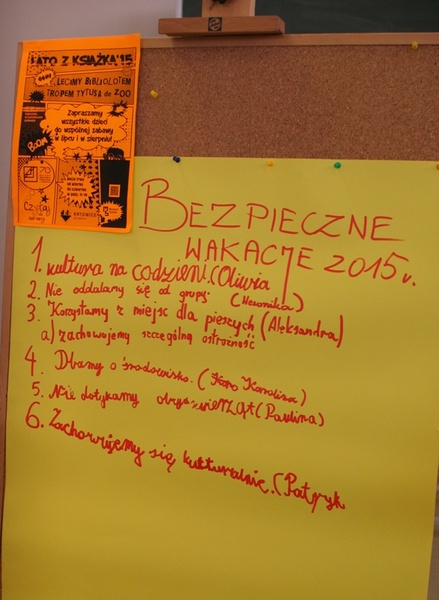 LATO Z KSIĄŻKĄ'15
LECIMY BIBLIOLOTEM
TROPEM TYTUSA de ZOO
Zapraszamy
wszystkie dzieci
do wspólnej zabawy
w lipcu i w sierpniu!
BEZPIECZNE
WAKACJE 2015 r.
1. kultura na codzień.(Oliwia
2. Nie oddalamy się od grupy. (Weronika)
3. Korzystamy z miejsc dla pieszych (Aleksandra)
a) zachowujemy szczególną ostrożność
4. Dbamy o środowisko. ( Karolina)
5. Nie dotykamy zwierząt (Paulina)
6. Zachowujemy się kulturalnie.(Patryk